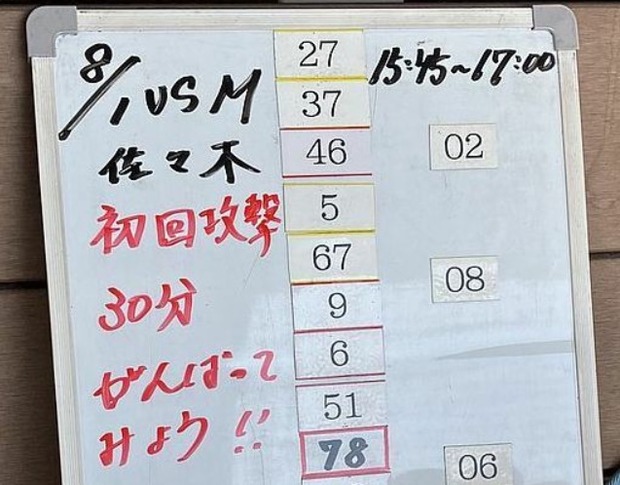 8/1 VS M
佐々木
初回攻撃
30分
がんばって
みよう!!
27
37
46
5
67
9
6
51
78
15:45~17:00
02
08
06